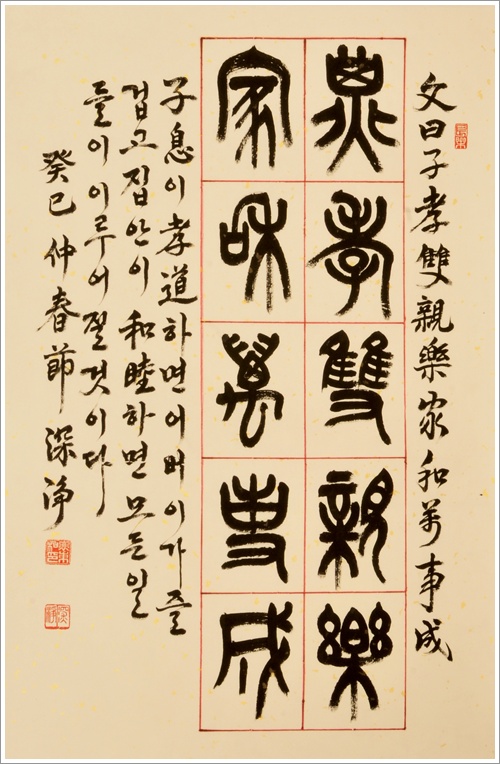 文曰子孝雙親樂家和萬事成
子孝雙親樂
家和萬事成
子息이 孝道하면 어버이가 즐
겁고 집안이 和睦하면 모든 일
들이 이루어 질 것이다
癸巳 仲春節 深淨